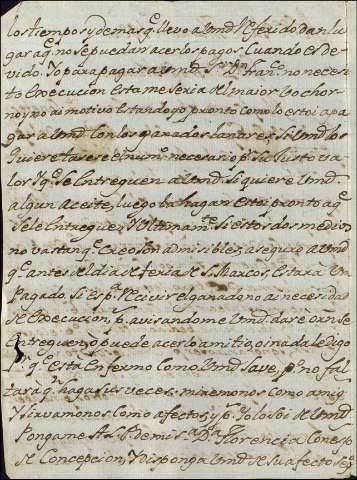 los tiempos y demas q.e llevo a Vmd Referido dan lu
gar aq.e no se puedan acer los pagos, Cuando es de
vido. Yo para pagar a Vmd S.r D.n Fran.co no necesi
to execucion esta me seria de maior bochor
no y no ai motivo estando yo pronto como lo estoi a pa
gar a Vmd con los ganados lanares, si Vmd los
quiere tasese el num.o necesario p.r su justo va
lor Y q.e se entreguen a Vmd. si quiere Vmd
algun Aceite, luego ba hagan estoi pronto aq.e
se le entregue, Y Ultimam.te si estos dos medios
no vastan q.e creo son admisibles, aseguro a Vmd
q.e antes del dia de feria de S. Marcos, estara Vm
Pagado. Si es p.a Recivir el ganado no ai necesidad
de Execucion, avisandome Vmd. dare orn. se
entreguen, y puede acerlo mi tio, o in a da Ledigo
P.r q.e està enfermo como Vmd save, p.o no fal
tarà q.n haga sus veces: miremonos como amig.s
Y sirvamonos como afectos, y p. Yo lo soi de Vmd
Pongame A L. P. de mi s.a D.a Florencia Con esp.
de Concepcion, Y disponga Vmd de su afecto Seg.o